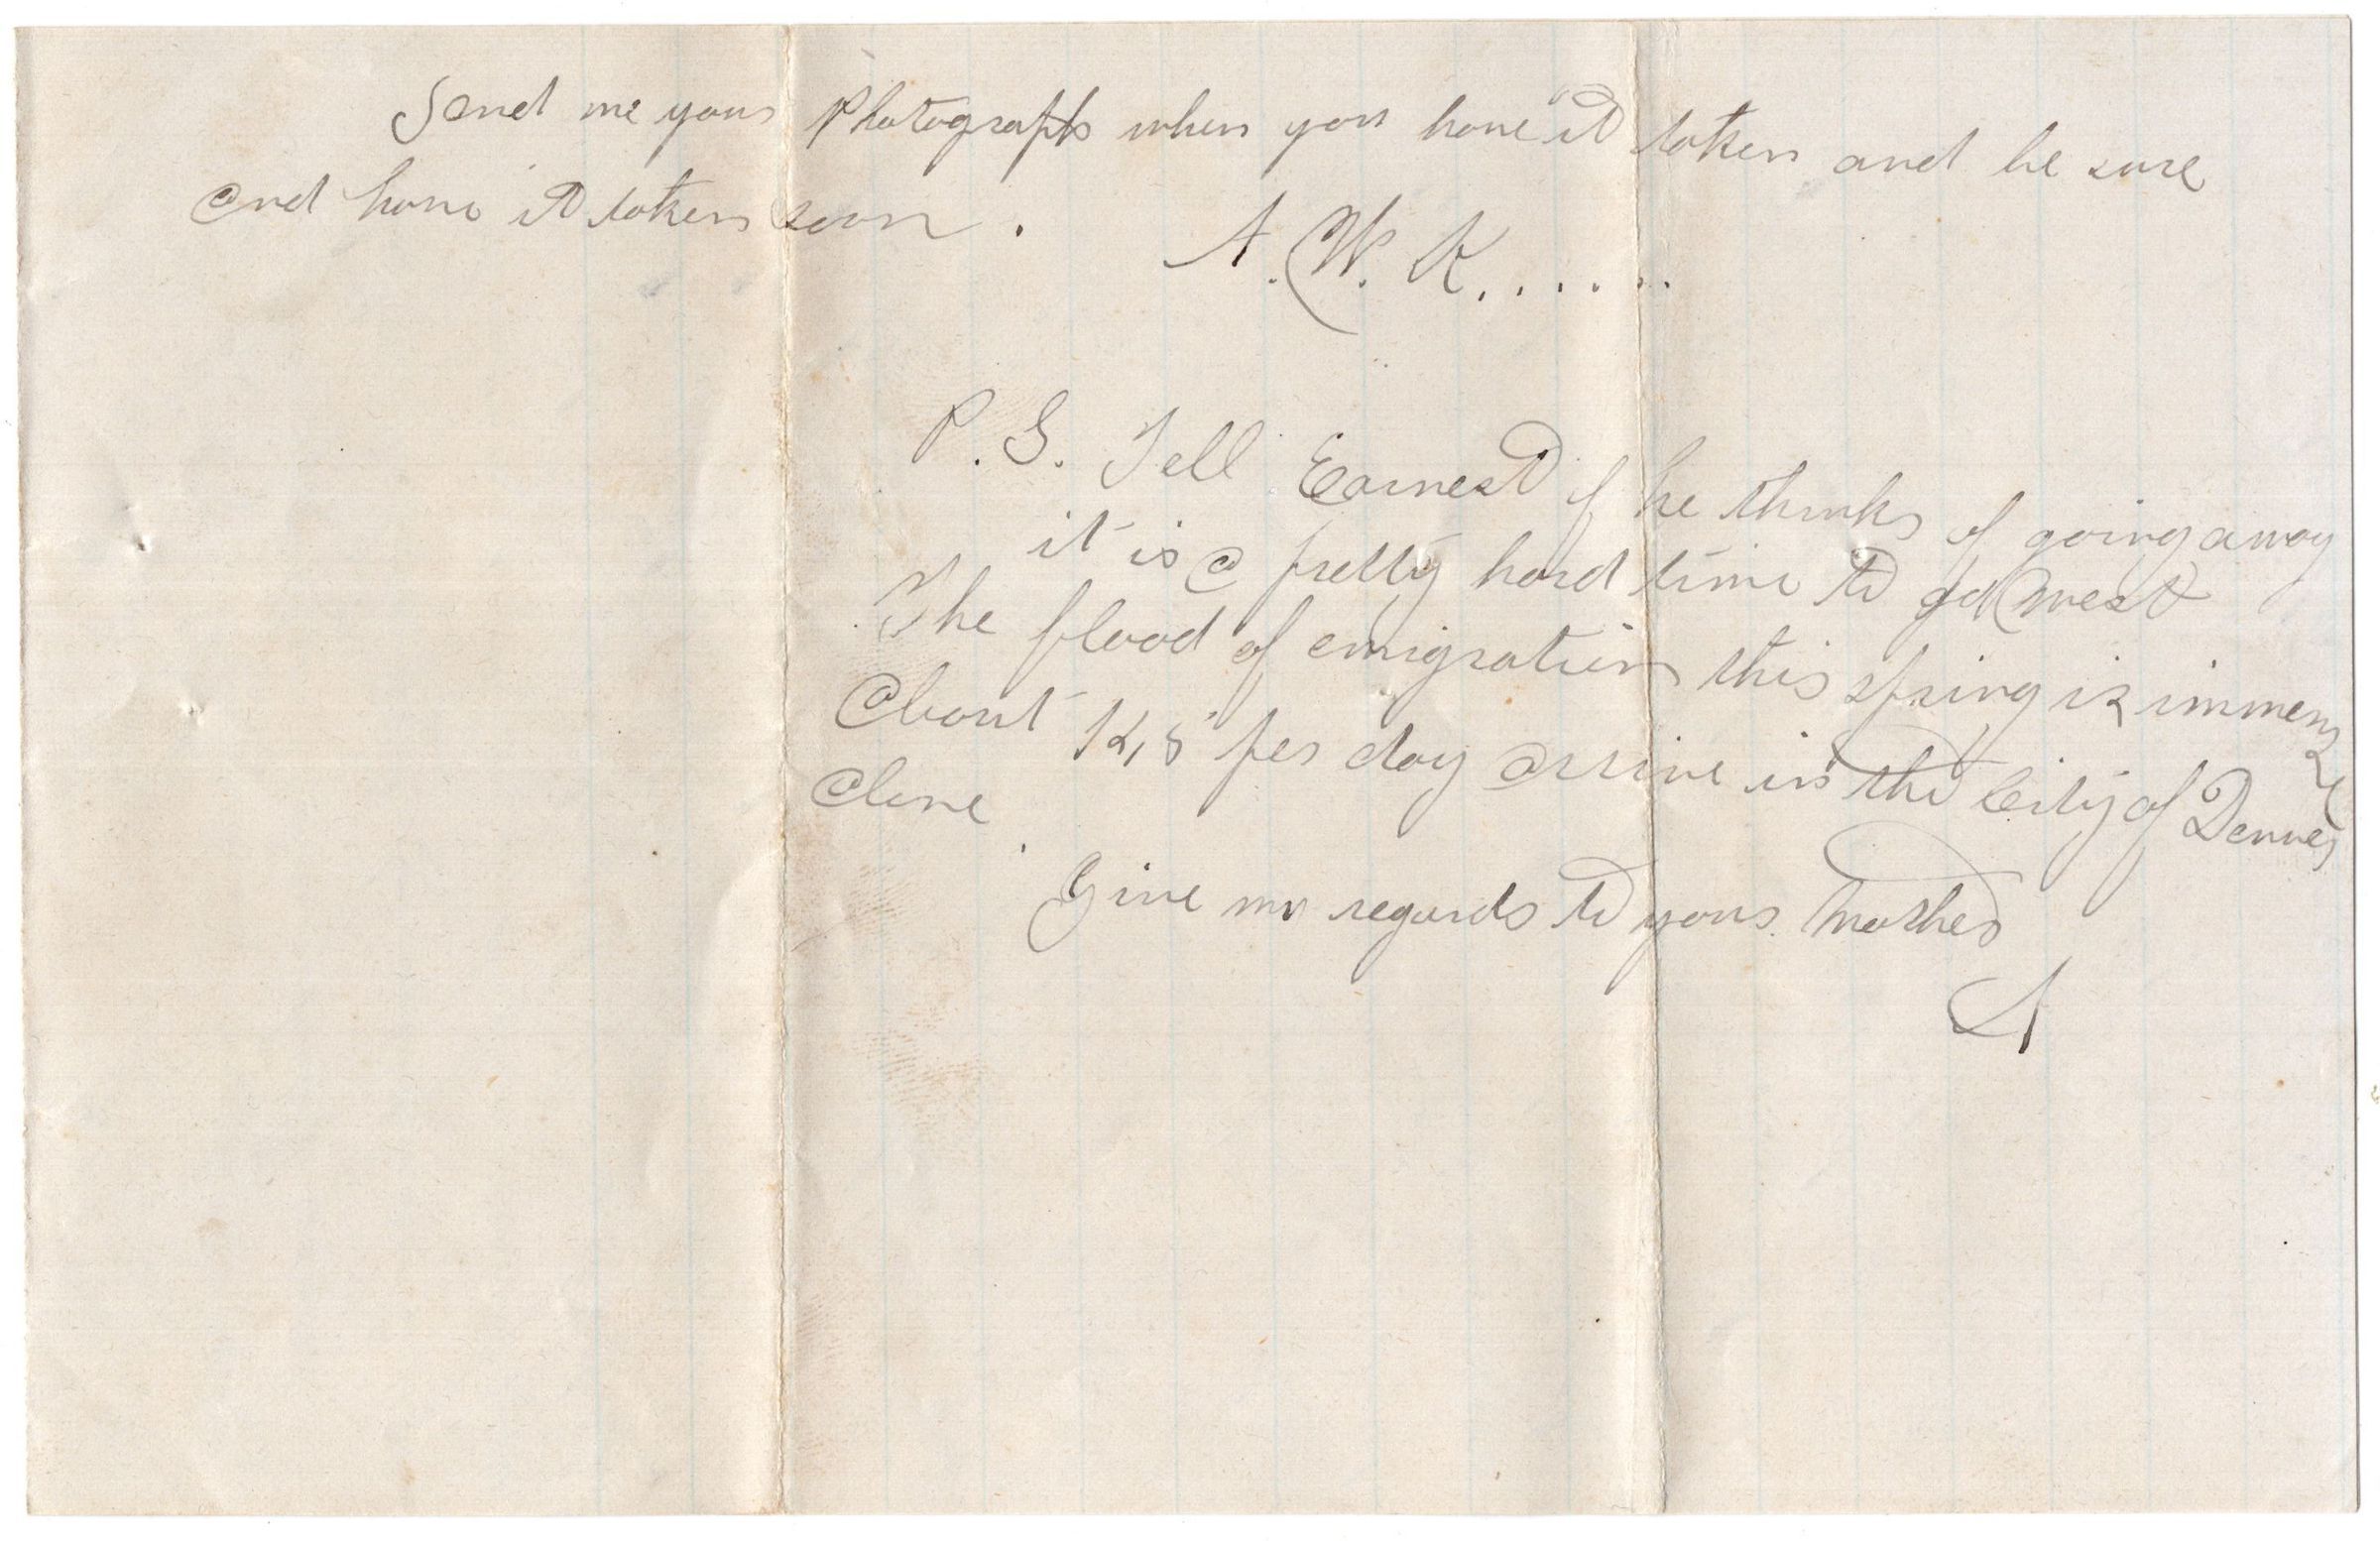 Send me your Photograph when you have it taken and be sure
and have it taken soon.
A. W. K. . . . . . .
P. S. Tell Earnest if he thinks of going away
it is a pretty hard time to go west
The flood of emigration this spring is immense
About per day arrive in the City of Denver
alone.
Give my regards to your Mother
A